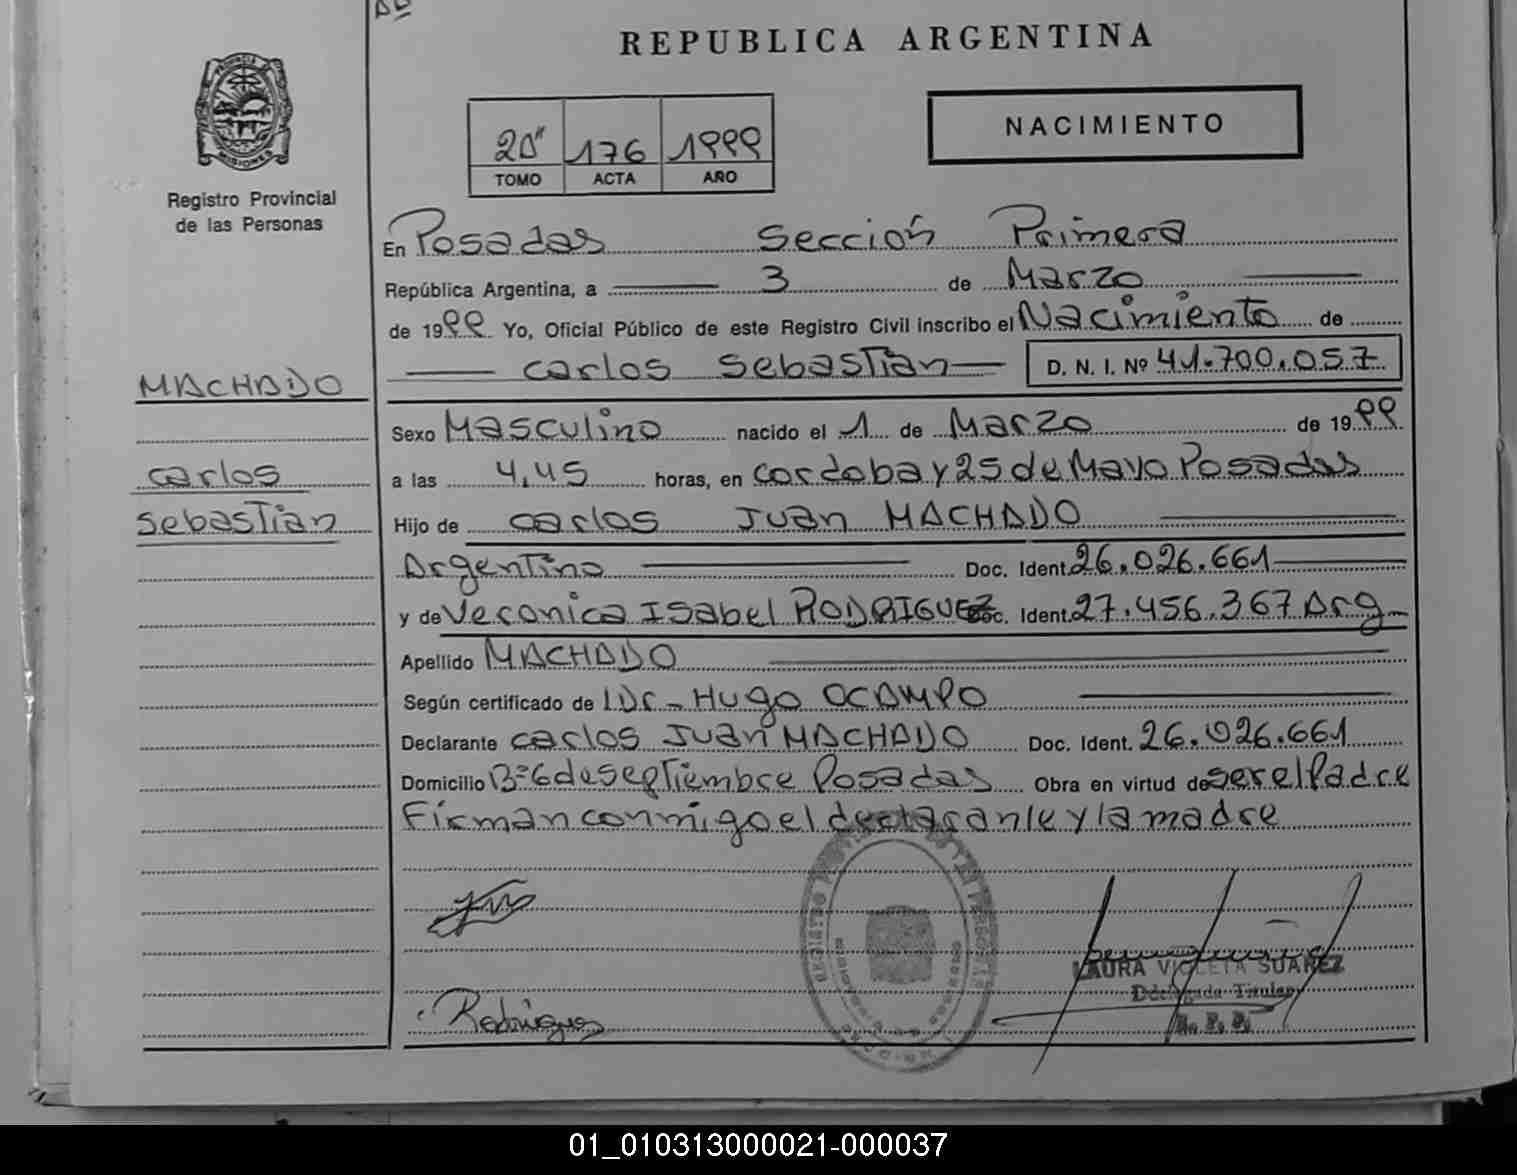 REPUBLICA ARGENTINA
PROVINCIA DE MISIONES
Registro Provincial
de las Personas
20" 176 1999
TOMO ACTA AÑO
NACIMIENTO
En Posadas Sección Primera
República Argentina, a 3 de Marzo
de 1999 Yo, Oficial Público de este Registro Civil inscribo el Nacimiento de
Carlos Sebastián D. N. I. Nº 41.700.057
MACHADO
Carlos
Sebastián
Sexo Masculino nacido el 1 de Marzo de 1999
a las 4,45 horas, en Cordoba y 25 de Mayo Posadas
Hijo de Carlos Juan MACHADO
Argentino Doc. Ident. 26.026.661
y de Veronica Isabel RODRIGUEZ Doc. Ident. 27.456.367 Arg
Apellido MACHADO
Según certificado de Dr- Hugo OCAMPO
Declarante Carlos Juan MACHADO Doc. Ident. 26.026.661
Domicilio Bº 6 de Septiembre Posadas Obra en virtud de ser el Padre
Firman conmigo el declarante y la madre
Rodriguez
LAURA VIOLETA SUAREZ
Delegada Titular
R. P. P.
01_010313000021-000037